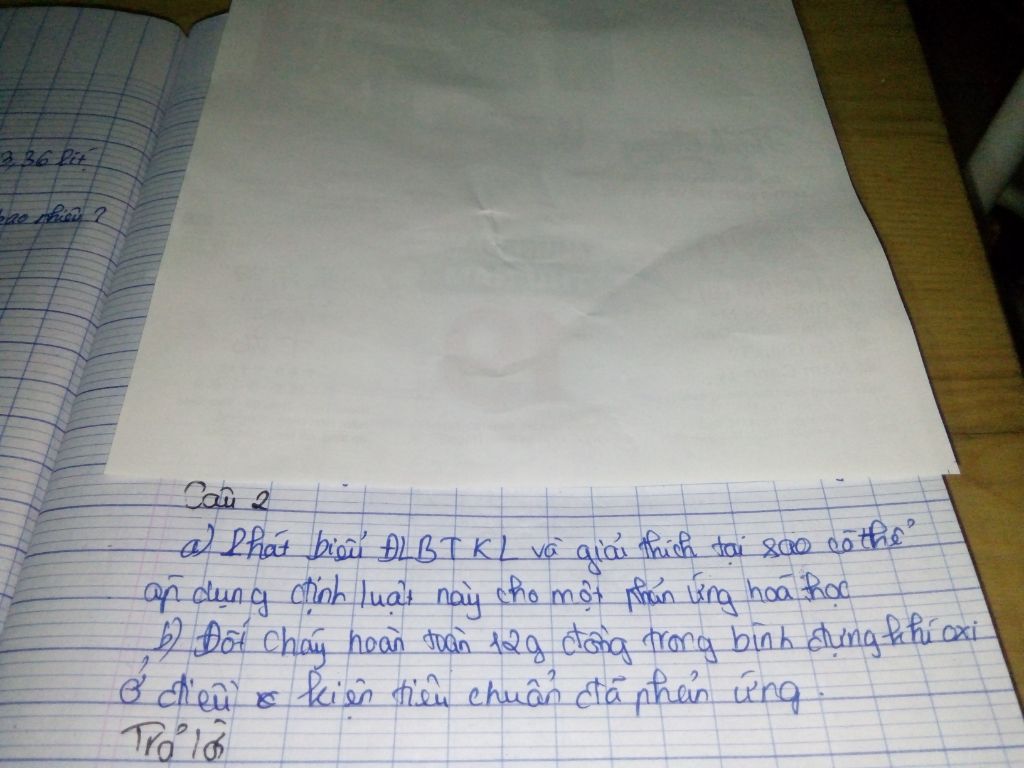 3,36 lít
bao nhiêu ?
Câu 2
a) Phát biểu ĐLBTKL và giải thích tại sao có thể
áp dụng định luật này cho một phản ứng hoá học
b) Đốt cháy hoàn toàn 12g đồng trong bình đựng khí oxi
ở điều kiện tiêu chuẩn đã phản ứng.
Trả lời